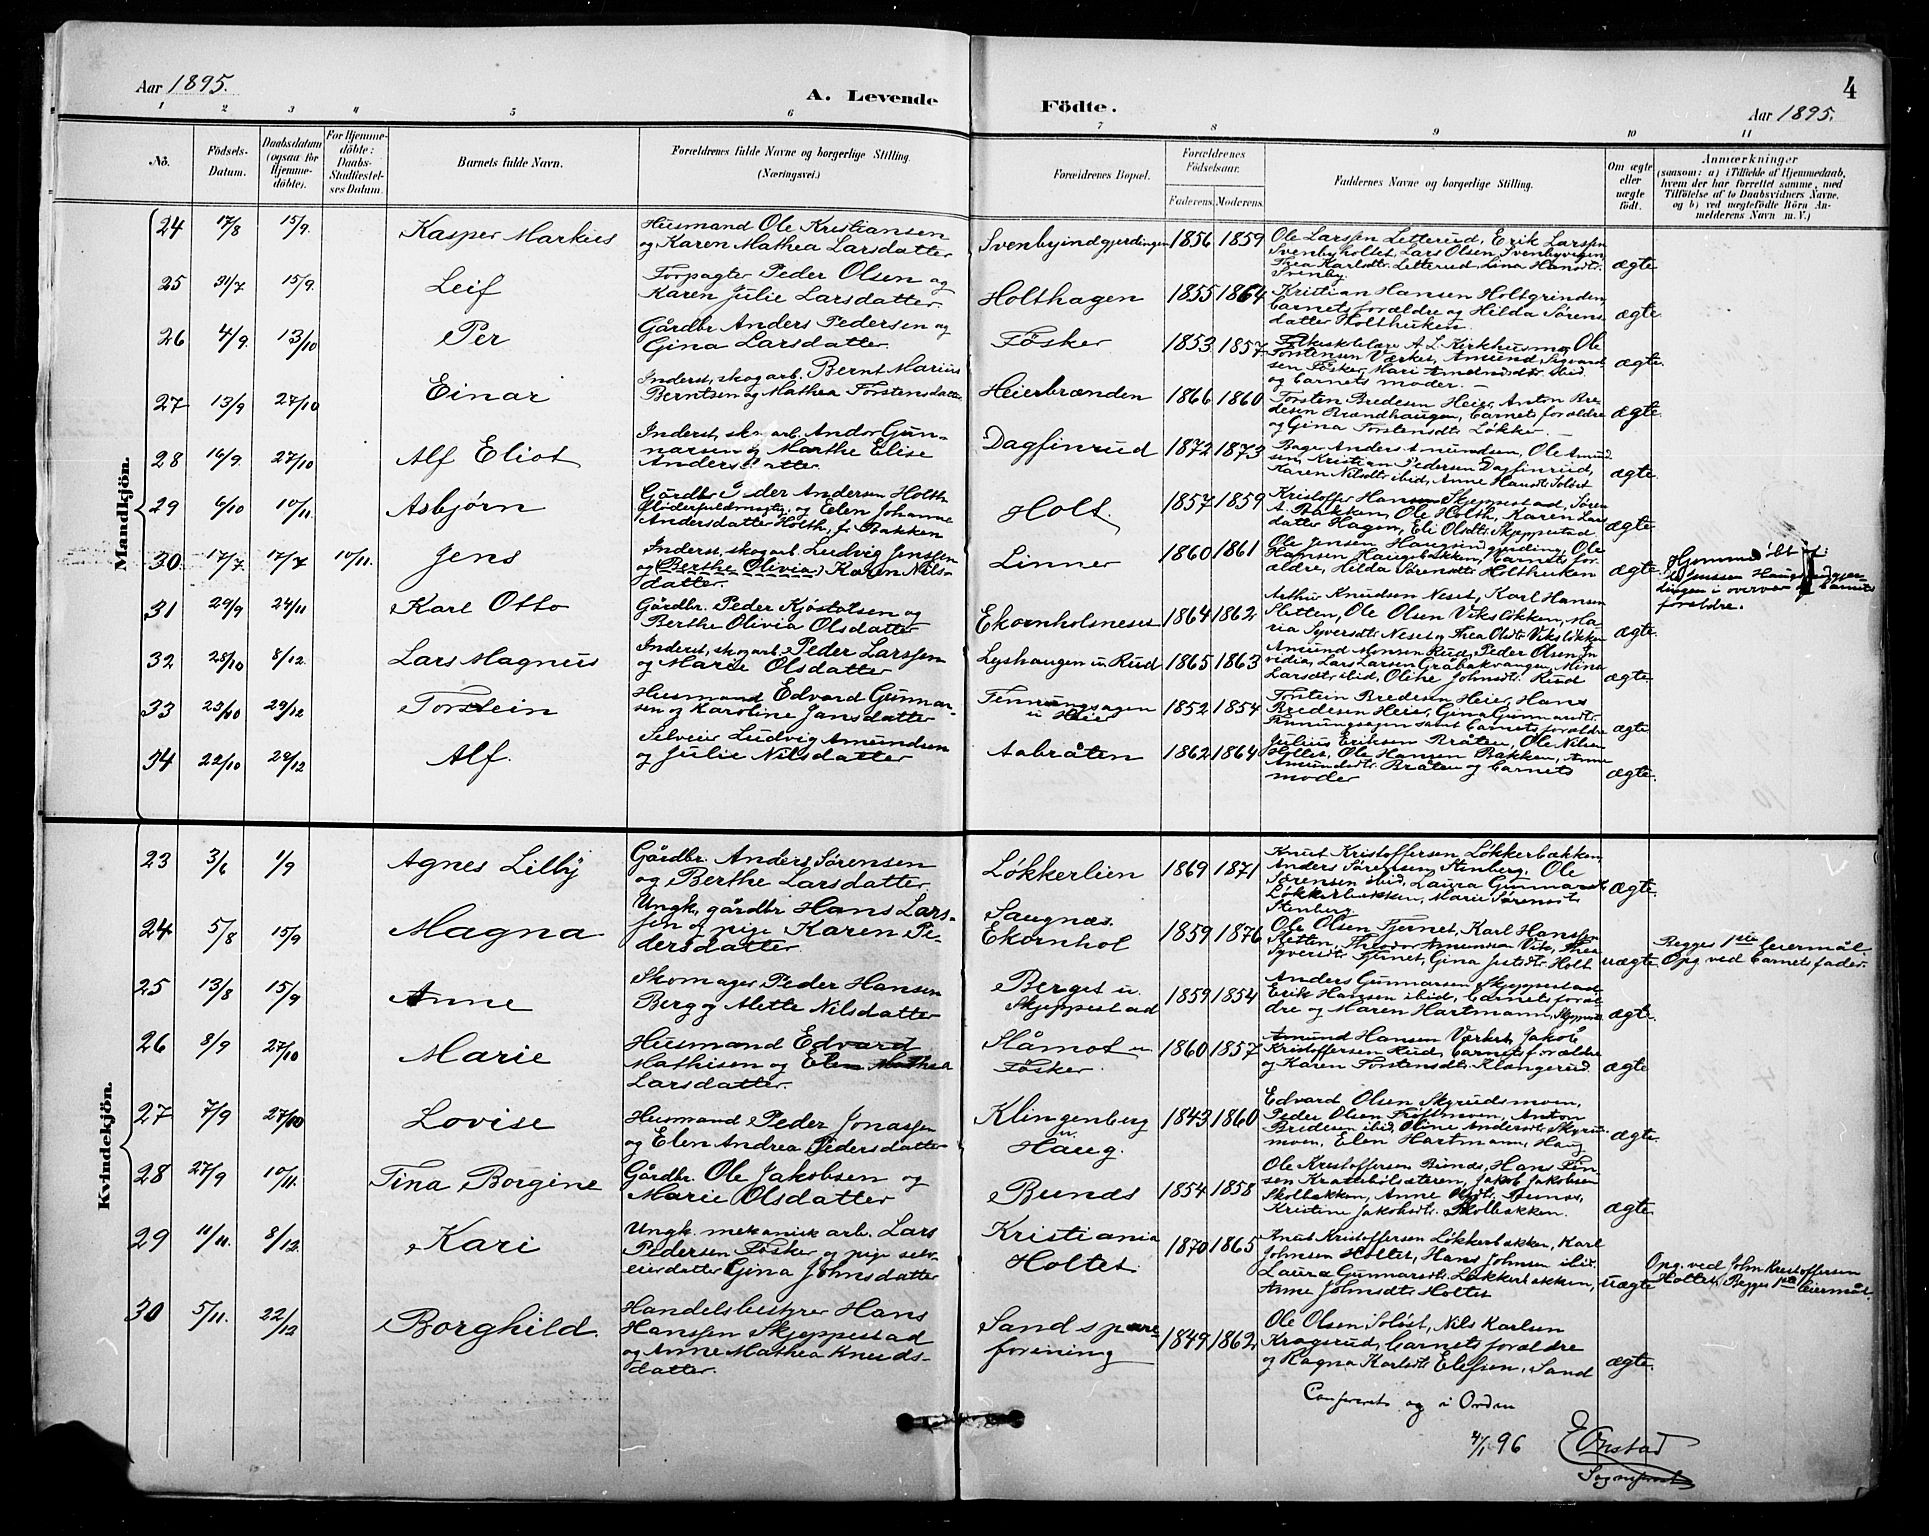 Aar 1895.
A. Levende Födte.
4
Aar 1895.
1 2 3 4 5 6 7 8 9 10 11
No.
Födsels-Datum.
Daabsdatum (ogsaa for Hjemmedöbte).
For Hjemmedöbte: Daabs-Stadfæstelses Datum.
Barnets fulde Navn.
Forældrenes fulde Navne og borgerlige Stilling.
(Næringsvei.)
Forældrenes Bopæl.
Forældrenes Födselsaar.
Faderens. Moderens.
Faddernes Navne og borgerlige Stilling.
Om ægte eller uægte födt.
Anmærkninger
(saasom: a) i Tilfælde af Hjemmedaab, hvem der har forrettet samme, med Tilföielse af to Daabsvidners Navne, og b) ved uægtefödte Börn Anmelderens Navn m. V.)
Mandkjön.
24 17/8 15/9. Kasper Markus
Husmand Ole Kristiansen
og Karen Mathea Larsdatter
Svenbyindgjerdingen 1856 1859
Ole Larsen Letterud, Erik Larsen
Svenbyholtet, Lars Olsen Svenbyvegen
Thea Karlsdtr. Letterud, Lina Hansdtr.
Svenby.
ægte
25 31/7 15/9. Leif
Forpagter Peder Olsen og
Karen Julie Larsdatter
Holthagen 1855 1864
Kristian Hansen Holtgrinden,
barnets forældre og Hilda Sørens
datter Holthuken.
ægte.
26 4/9. 13/10 Per
Gårdbr. Anders Pedersen og
Gina Larsdatter.
Fosker 1853 1857
A. L. Kirkhusmo, Ole
Torstensen Værket, Amund
sen Fosker Mari Amundsdtr. ibid
og barnets moder. —
ægte
27 13/9 27/10 Einar
Inderst, skogarb. Bernt Marius
Berntsen og Mathea Torstensdatter
Heierbrænden 1866 1860
Torsten Bredesen Heier, Anton Bre-
desen Brændhaugen, barnets forældre
og Gina Torstensdtr. Løkker —
ægte.
28 16/9. 27/10 Alf Eliot
Inderst, skogarb. Andor Gun-
narsen og Marthe Elise
Andersdatter.
Dagfinrud 1872 1873
Anders Amundsen, Ole Amund
sen, Kristian Pedersen Dagfinrud,
Karen Nilsdtr ibid, Anne Hansdtr
ægte.
29 6/10 10/11. Asbjørn
Gårdbr. Peder Andersen Holth
og Elen Johanne
Andersdatter Holth, f. Bakken
Holt. 1857 1859
Kristoffer Hansen Skjeppestad, Søren
A. Bakken, Ole Holth, Karen Lars
datter Hagen, Eli Olsdtr. Skjeppestad
ægte
30. 17/7 17/7 10/11. Jens
Inderst, skogarb. Ludvig Jenssen
og (Berthe Olivia) Karen Nils-
datter.
Linner 1860 1861
Ole Jensen Haugsindgjerding, Ole
Hansen Haugsbakken, barnets for-
ældre, Hilda Sørensdtr. Holthuken
ægte
Hjemmedøbt af
Jenssen
i overvær af barnets
forældre.
31 29/9 24/11 Karl Otto
Gårdbr. Peder Kjøstolsen og
Berthe Olivia Olsdatter
Ekornholsneset 1864 1862
Arthur Knudsen Neset, Karl Hansen
Sletten, Ole Olsen Viksløkken, Ma-
ria Syversdtr. Neset og Thea Olsdtr. Viksløkken
ægte.
32 28/10 8/12. Lars Magnus
Inderst, skogarb. Peder Larssen
og Marie Olsdatter
Lyshaugen u. Rud 1865 1863
Amund Monsen Rud, Peder Olsen
Lars Larsen Gråbakvangen, Mina
Larsdtr. ibid, Oline Johnsdtr. Rud
ægte.
33 23/10 29/12 Torstein
Husmand Edvard Gunnar-
sen og Karoline Jansdatter
u. Heier 1852 1854
Torstein Bredesen Heier, Hans
Bredesen Heier, Gina Gunnarsdtr.
samt barnets forældre
ægte
34 22/10 29/12 Alf.
Selveier Ludvig Amundsen
og Julie Nilsdatter
Aabråten 1862 1864
Julius Eriksen Bråten, Ole Nilsen
Ole Hansen Bakken, Anne
Amundsdtr. Bråten og barnets
moder
ægte.
Kvindekjön.
23 3/6 1/9 Agnes Lilly
Gårdbr. Anders Sørensen
og Berthe Larsdatter
Løkkerlien 1869 1871
Knut Kristoffersen Løkkerbakken,
Anders Sørensen Stenberg, Ole
Sørensen ibid, Laura Gunnarsdtr.
Løkkerbakken, Marie Sørensdtr.
Stenberg
ægte.
24 5/8 15/9 Magna
Ungk. gårdbr Hans Lars-
sen og pige Karen Pe-
dersdatter
Saugnæs.
Ekornhol 1859 1876
Ole Olsen Tjernet, Karl Hanssen
Sletten, Theodor Amundsen Vik, Thea
Syversdtr. Tjernet, Gina Holt
uægte.
Begges 1ste leiermål.
Opg. ved barnets fader.
25 13/8 15/9 Anne
Skomager Peder Hansen
Berg og Alette Nilsdatter
Berget u.
Skjeppestad 1859 1854
Anders Gunnarsen Skjeppestad
Erik Hansen ibid, barnets foræl-
dre og Maren Hartmann,
ægte.
26 8/9 27/10 Marie
Husmand Edvard
Mathisen og Elen Mathea
Larsdatter.
Slåmot u
Fosker 1860 1857
Amund Hansen Værket, Jakob
Kristoffersen Rud, barnets forældre
og Karen Torstensdtr. Klangerud.
ægte
27 7/9 27/10 Lovise
Husmand Peder Jonassen
og Elen Andrea Pedersdatter
Klingenberg
u.
Haug. 1843 1860
Edvard Olsen Skyrudsmoen,
Peder Olsen Anton
Bredesen ibid, Oline Andersdtr. Skyruds-
moen, Elen Hartmann, Haug
ægte.
28 27/9 10/11. Tina Borgine
Gårdbr. Ole Jakobsen og
Marie Olsdatter
Bunæs 1854 1858
Ole Kristoffersen Bunæs, Hans Fin-
sen Jakob Jakobsen
Skolbakken, Anne Olsdtr. Bunæs,
Kristine Jakobsdtr. Skolbakken.
ægte
29 11/11. 8/12 Kari
Ungk. mekanisk arb. Lars
Pedersen Fosker og pige selv-
eierdatter Gina Johnsdatter
Kristiania
Holtet. 1870 1865
Knut Kristoffersen Løkkerbakken, Karl
Johnsen Holtet, Hans Johnsen ibid
Laura Gunnarsdtr. Løkkerbakken,
Anne Johnsdtr Holtet
uægte
Opg. ved John Kristoffersen
Holtet, Begges 1ste leiermål.
30 5/11. 22/12 Borghild.
Handelsbestyrer Hans
Hanssen Skjeppestad
og Anne Mathea Knuds-
datter.
Sandspare-
forening 1849 1862
Ole Olsen Soløst, Nils Karlsen
Kragsrud, barnets forældre
og Ragna Karlsdtr Elefsen, Sand
ægte.
Confereret og i Orden
4/1 96 E Ørstad
Sogneprest